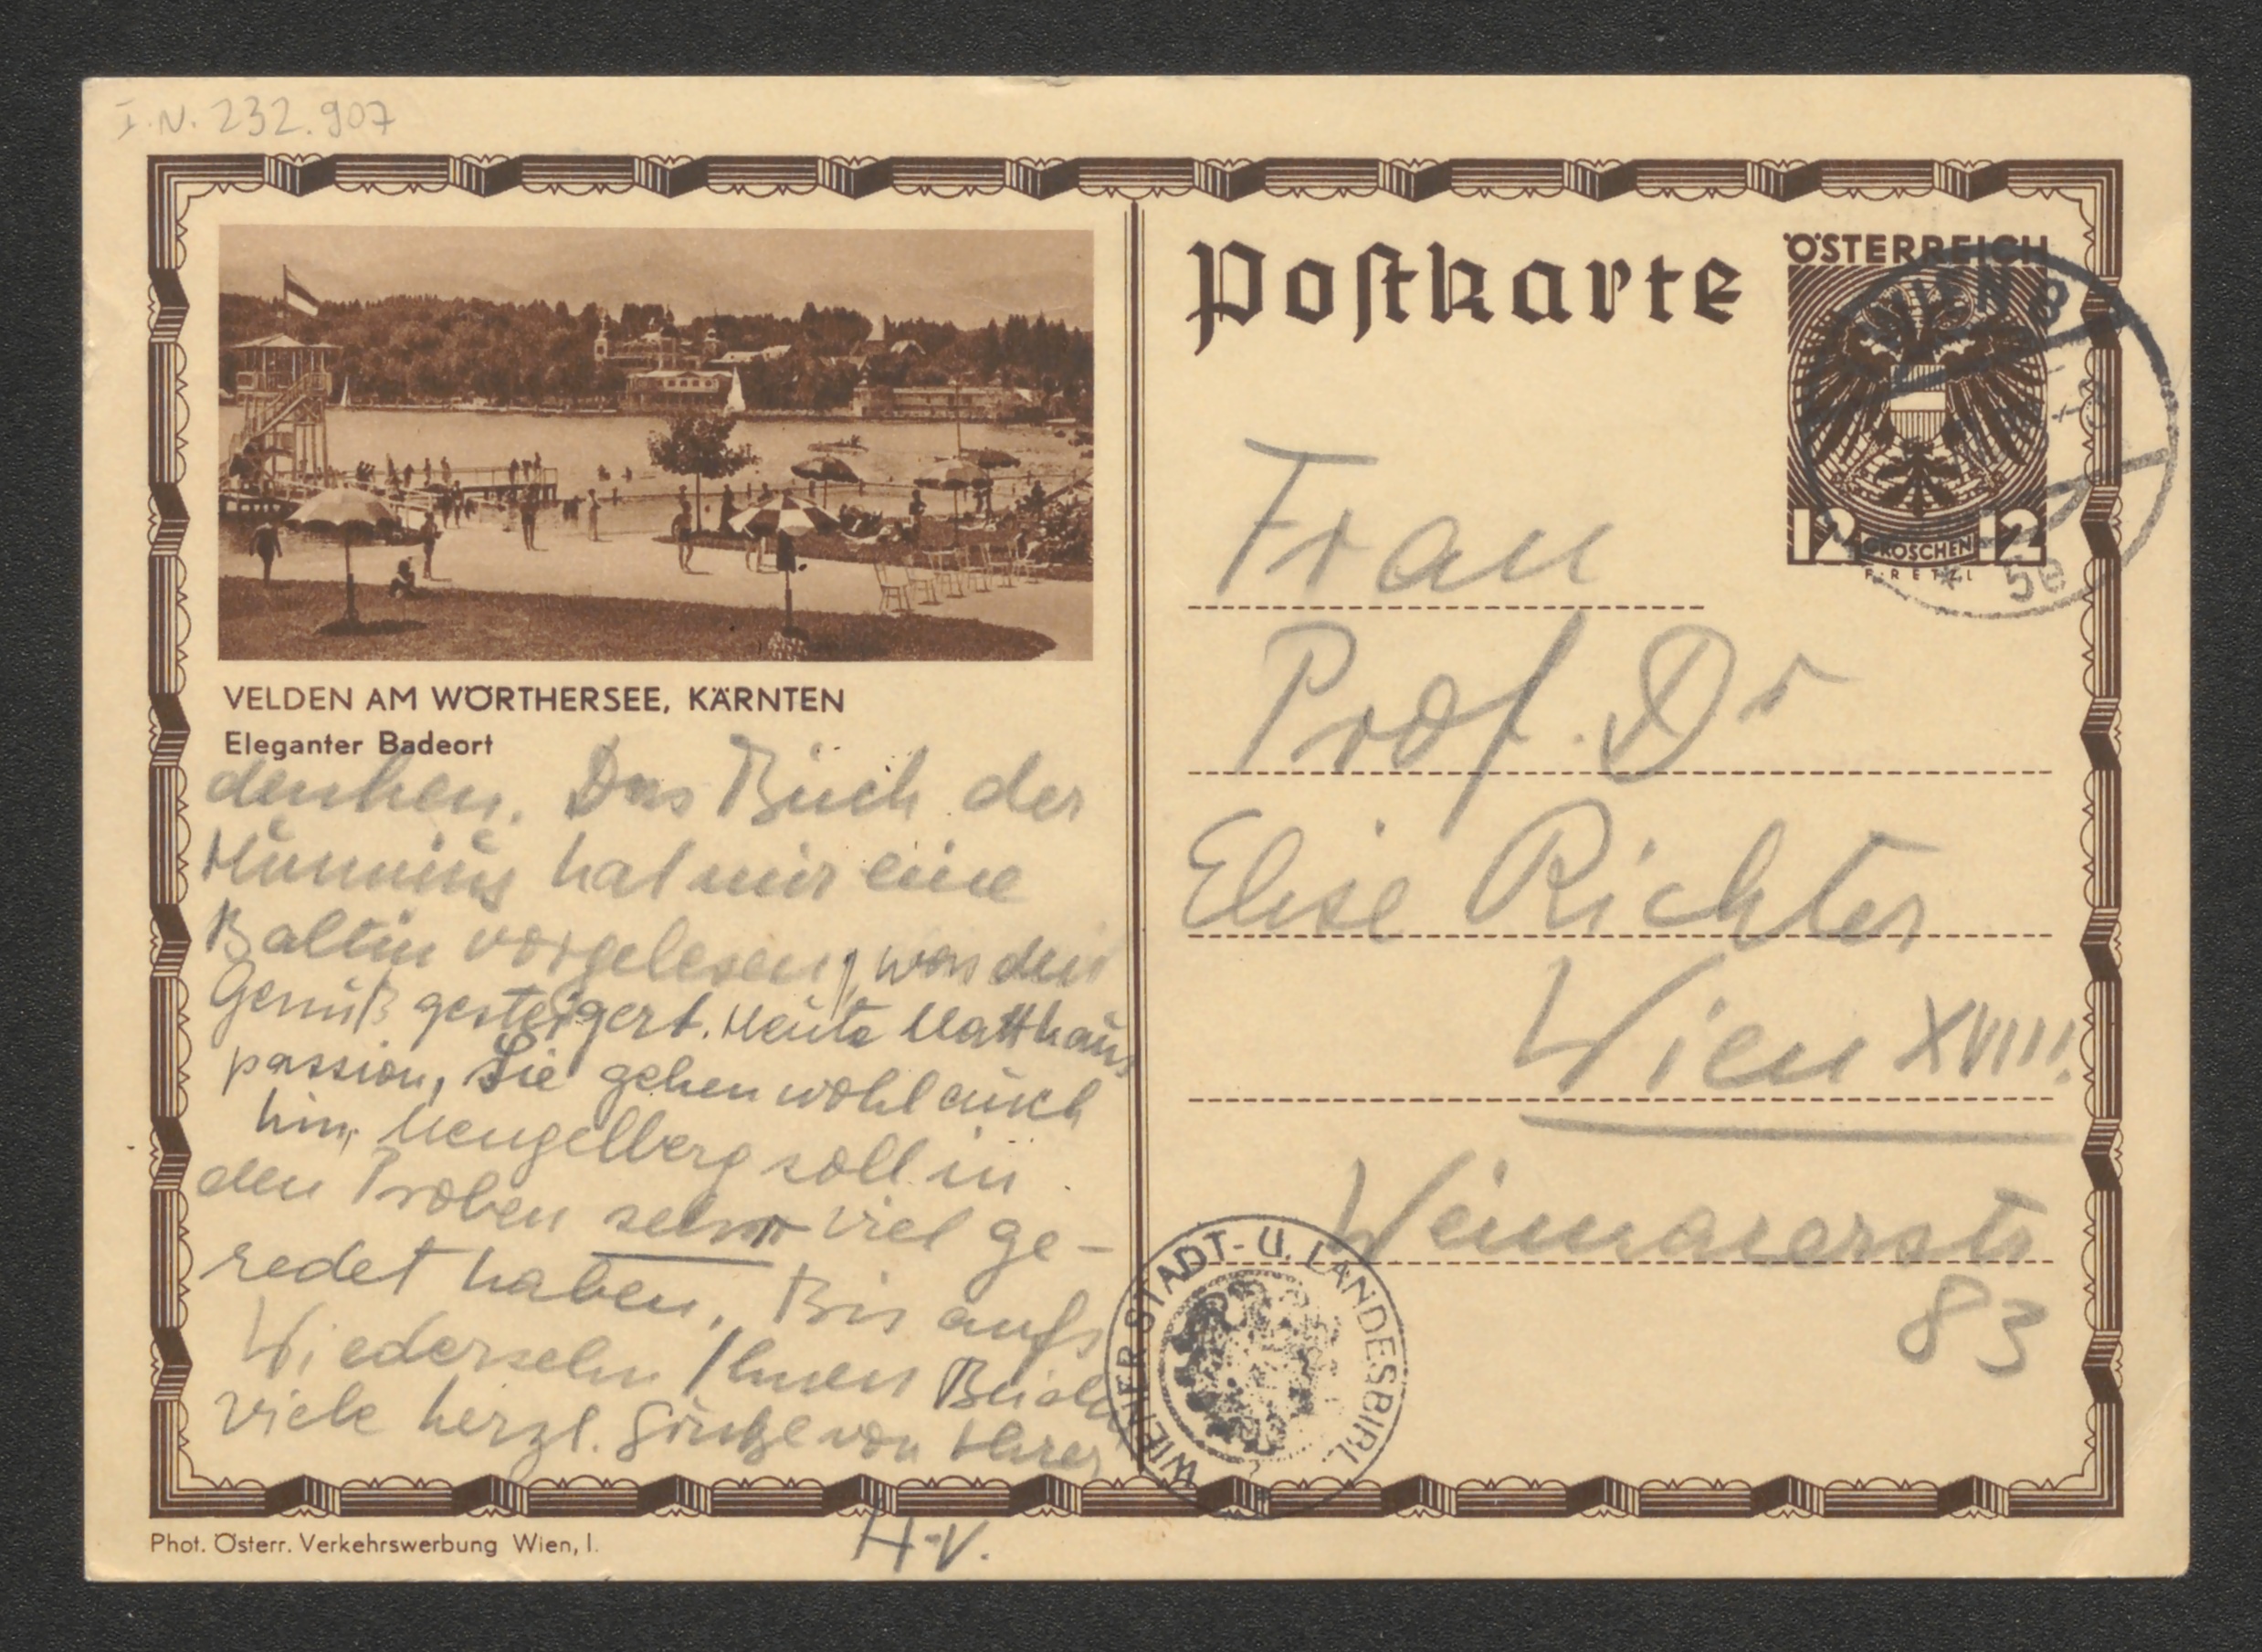 I.N. 232.907
VELDEN AM WÖRTHERSEE, KÄRNTEN
Eleganter Badeort
denken. Das Buch der
Munnius hat mir eine
Baltin vorgelesen, was den
Genuß gesteigert. Heute Matthäus
passion, Sie gehen wohl auch
hin, Mengelberg soll in
den Proben sehr viel ge-
redet haben. Bis aufs
Wiedersehn Ihnen Beiden
viele herzl. Grüße von Ihrer
H-V.
Phot. Österr. Verkehrswerbung Wien, I.
Postkarte
ÖSTERREICH
12 GROSCHEN 12
F·RETZL
WIEN 8
* 5e
Frau
Prof. Dr
Elise Richter
Wien XVIII.
Weimarerstr
83
WIENER STADT- U. LANDESBIBL.